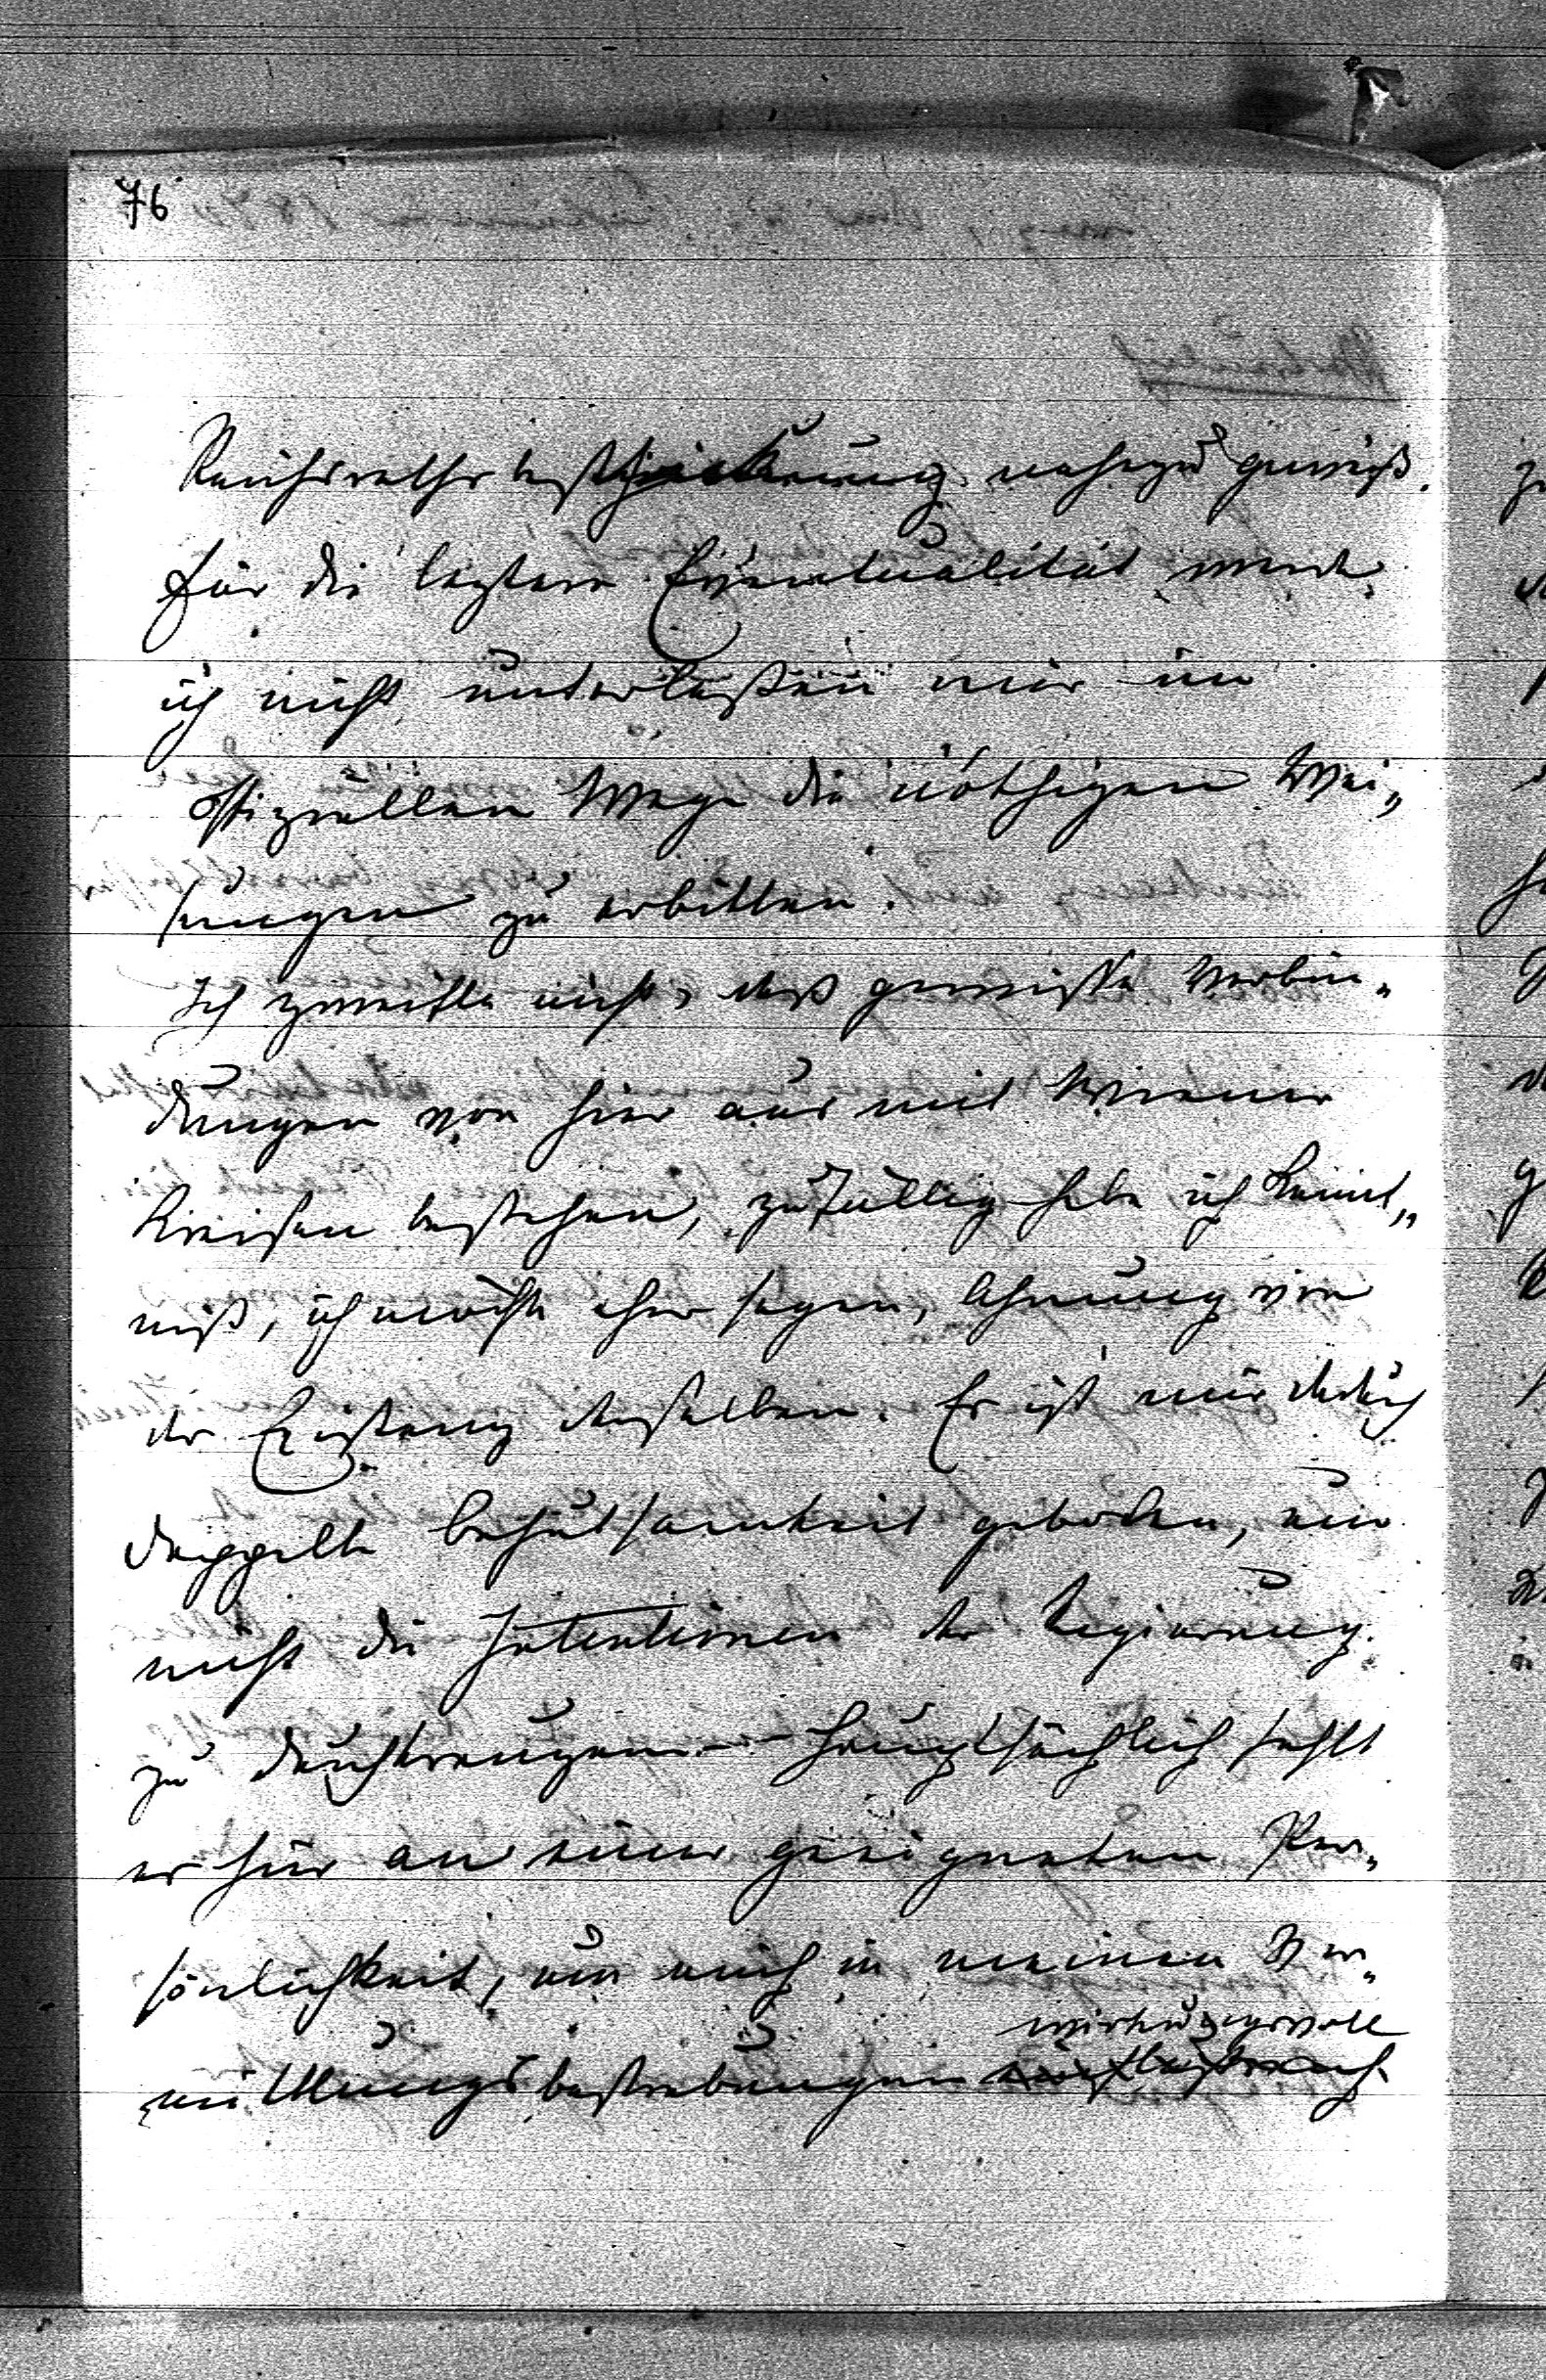 76
Reichsrathsbeschickung nahezu gewiß.
Für die leztere Eventualität werde
ich nicht unterlaßen mir im
offiziellen Wege die nöthigen Wei„
sungen zu erbitten.
Ich zweifle nicht, daß gewisse Verbin„
dungen von hier aus mit Wiener
Kreisen bestehen, zufällig habe ich Kennt„
niß, ich möchte eher sagen, Ahnung von
der Existenz derselben. Es ist mir dadurch
doppelte Behutsamkeit geboten, um
nicht die Intentionen der Regierung
zu durchkreuzen – Hauptsächlich fehlt
es hier an einer geeigneten Per„
sönlichkeit, um mich in meinen Ver„
wirkungsvoll
mittlungsbestrebungen